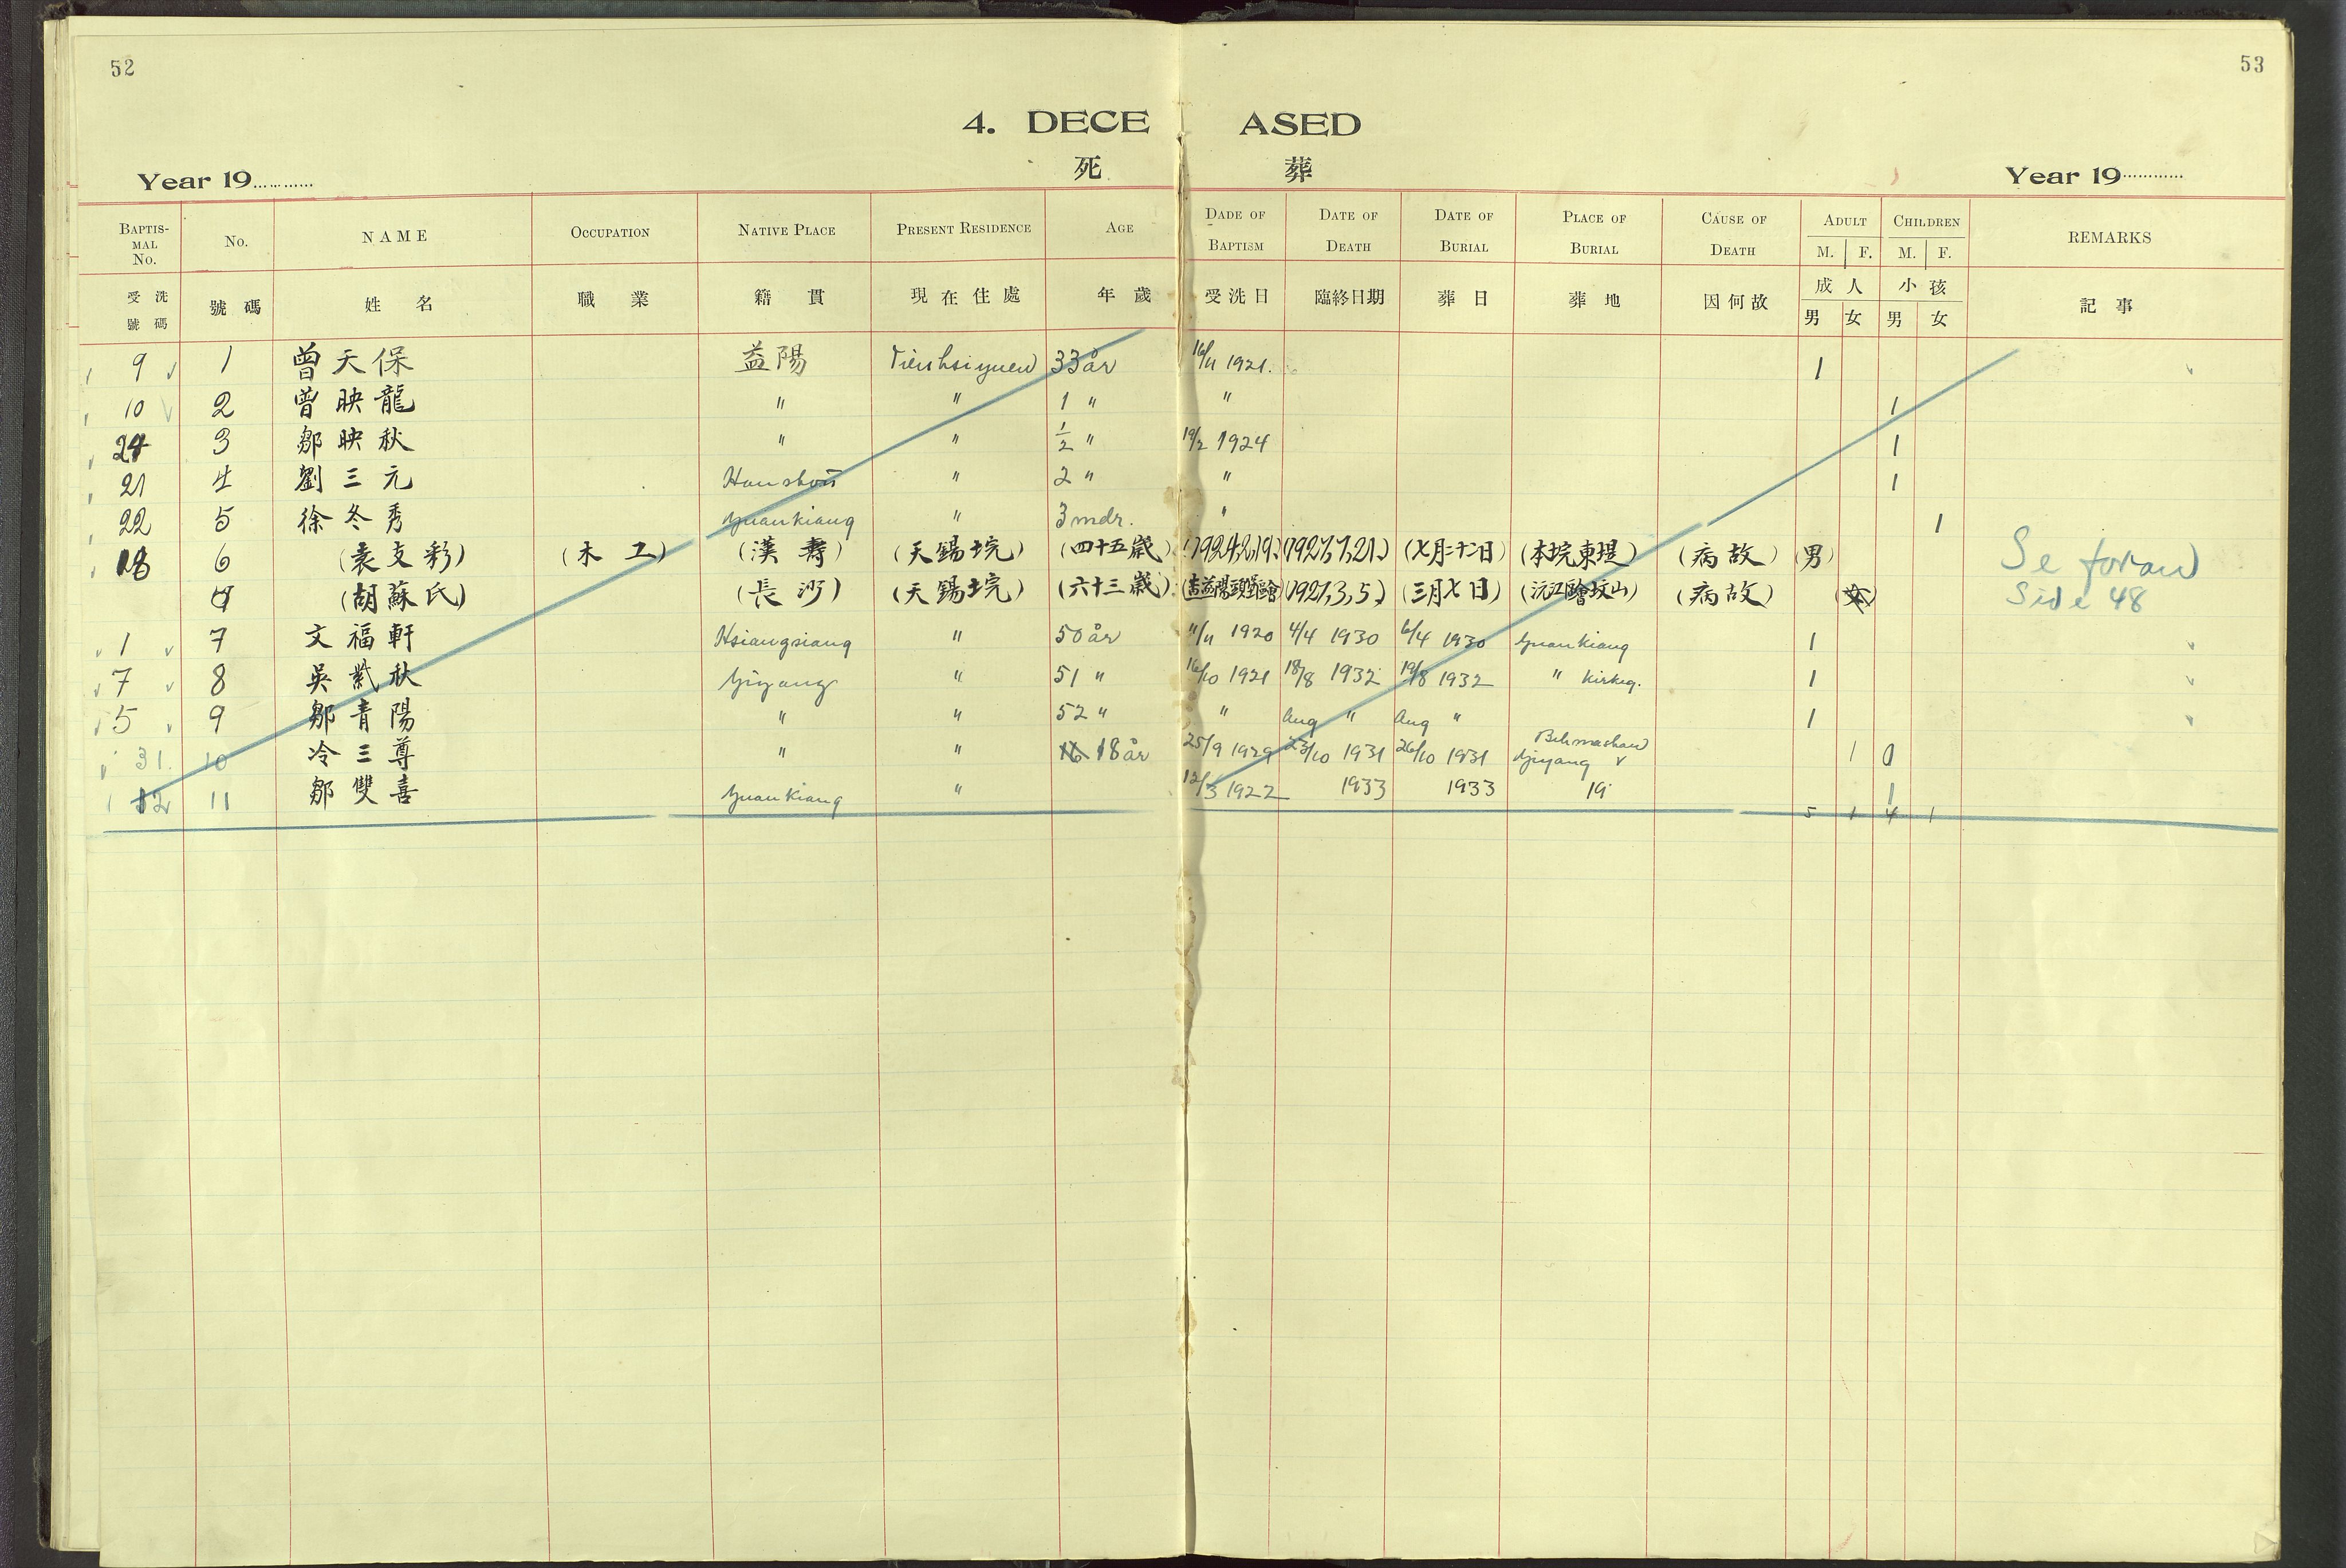 52
53
4. DECEASED
死 葬
Year 19............ Year 19............
BAPTISMAL No. No. NAME OCCUPATION NATIVE PLACE PRESENT RESIDENCE AGE DADE OF BAPTISM DATE OF DEATH DATE OF BURIAL PLACE OF BURIAL CAUSE OF DEATH ADULT M. F. CHILDREN M. F. REMARKS
受洗號碼 號碼 姓名 職業 籍貫 現在住處 年歲 受洗日 臨終日期 葬日 葬地 因何故 成人 男 女 小孩 男 女 記事
9 1 曾天保 益陽 Tienhsiyuen 33 år 16/11 1921. 1
10 2 曾映龍 " " 1 " " 1
3 鄒映秋 " " 1/2 " 19/2 1924 1
21 4 劉三元 Hanshou " 2 " " 1
22 5 徐冬秀 Yuankiang " 3 mdr. " 1
18 6 (袁支彩) (木工) (漢壽) (天錫垸) (四十五歲) (1924,2,19) (1927,7,21) (七月二十二日) (本垸東堤) (病故) (男) Se foran
(胡蘇氏) (長沙) (天錫垸) (六十三歲) (1927,3,5) (三月七日) (病故) (女) Side 48
1 7 文福軒 Hsiangsiang " 50 år 11/11 1920 4/4 1930 6/4 1930 Yuankiang 1
7 8 吳紫秋 Yiyang " 51 " 16/10 1921 18/8 1932 19/8 1932 " Kirkeg. 1
5 9 鄒青陽 " " 52 " " Aug " Aug " 1
31. 10 冷三尊 " " 16 18 år 25/9 1929 23/10 1931 26/10 1931 Yiyang 1 0
12 11 鄒雙喜 Yuankiang " 12/3 1922 1933 1933 19 1
5 1 4 1